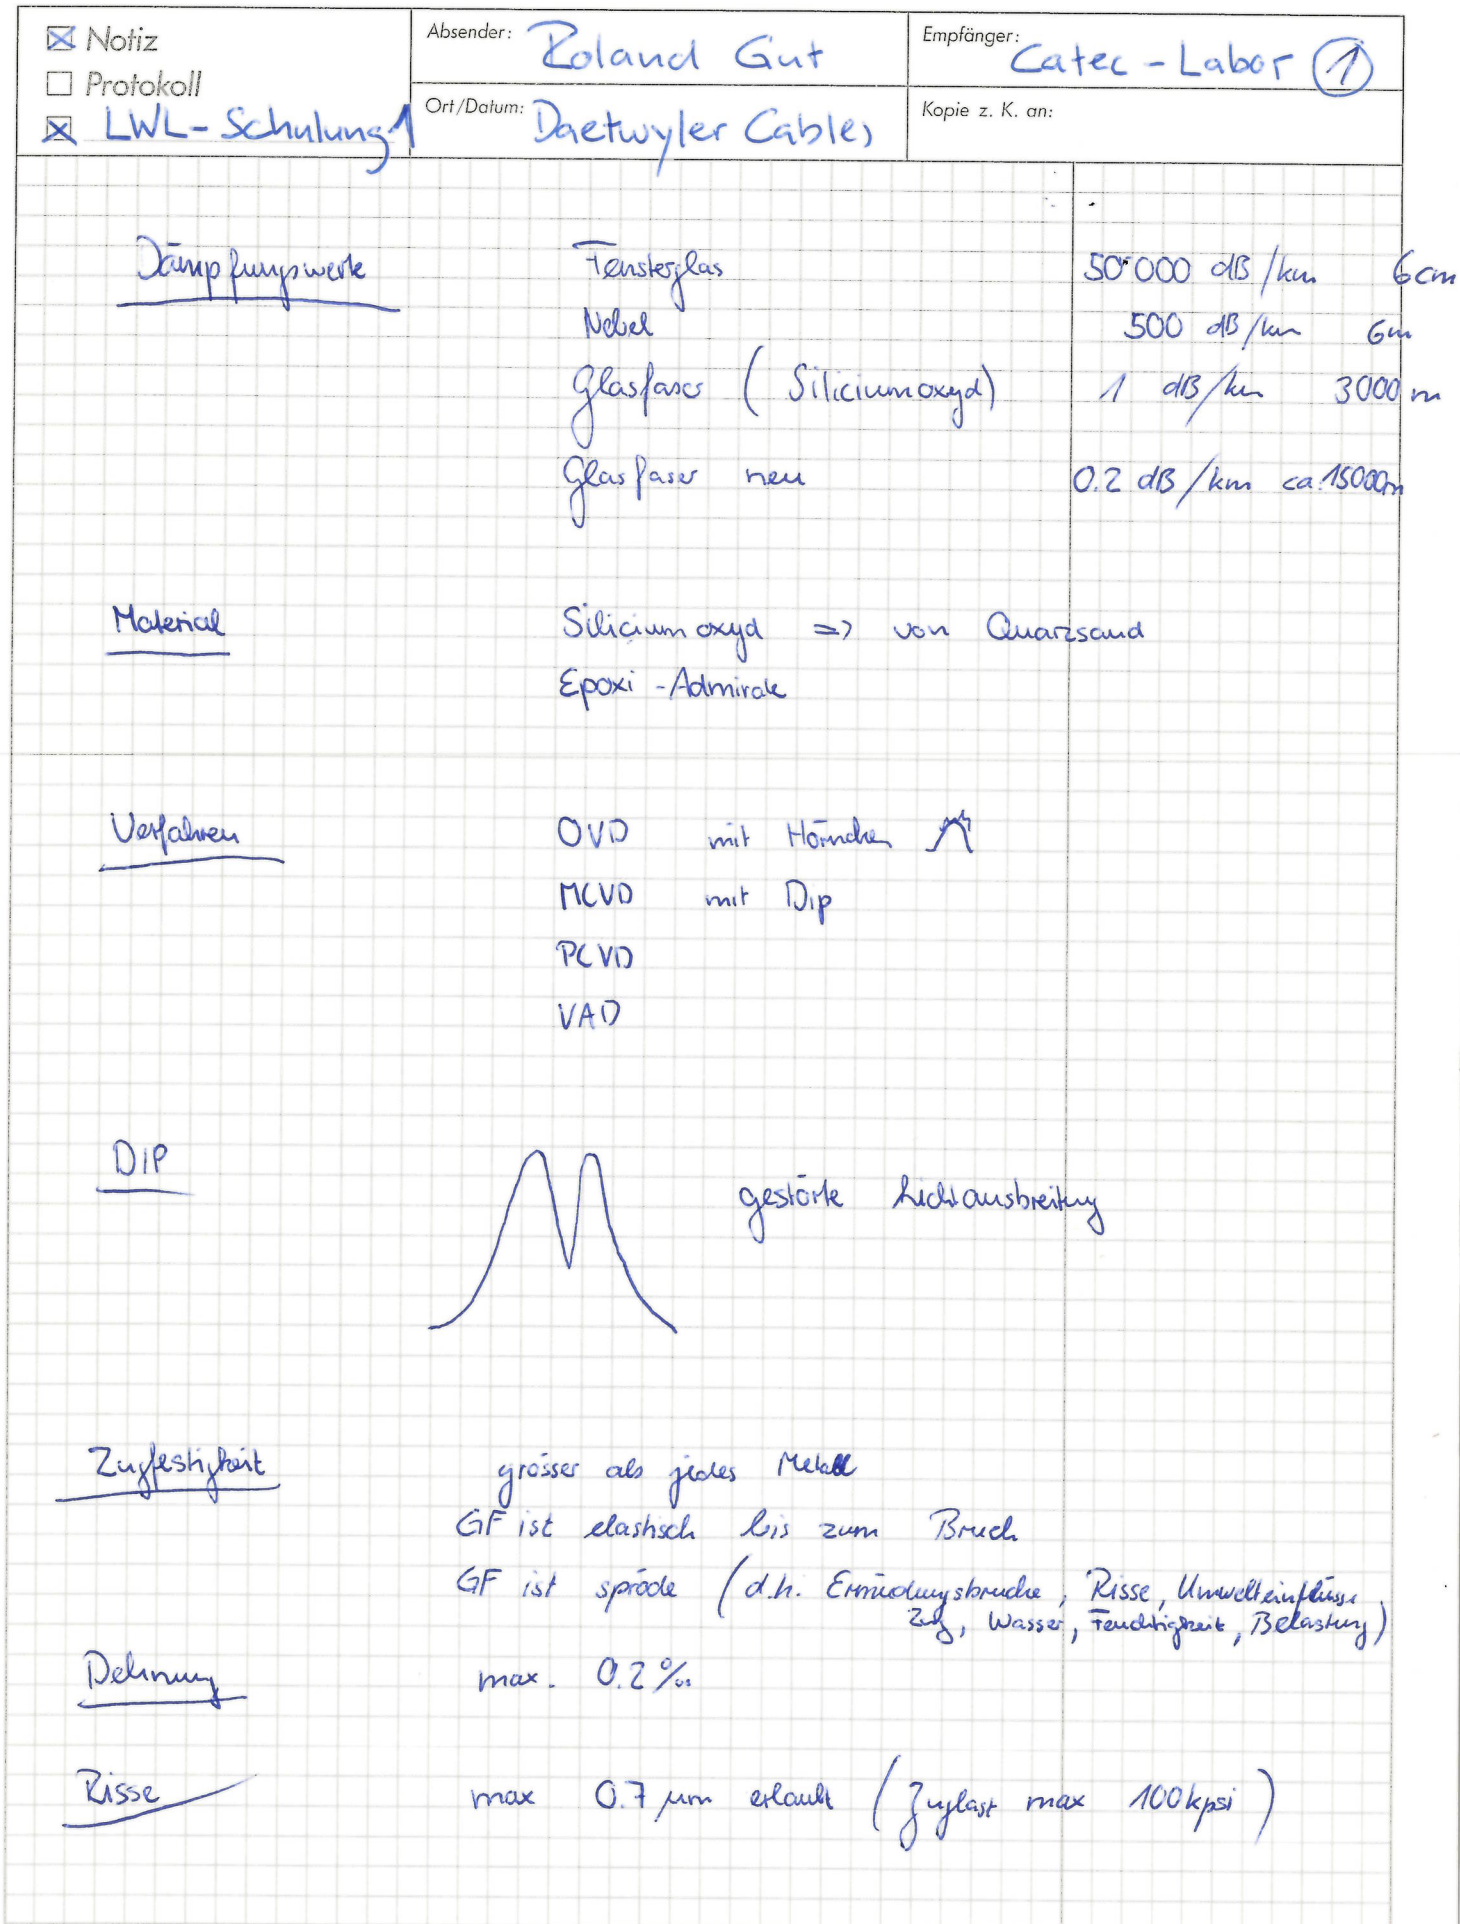 Notiz
Protokoll
LWL-Schulung 1
Absender: Roland Gut
Ort/Datum: Daetwyler Cables
Empfänger: Catec-Labor 1
Kopie z. K. an:
Dämpfungswerte Fensterglas 50'000 dB/km 6cm
Nebel 500 dB/km 6m
Glasfaser (Siliciumoxyd) 1 dB/km 3000 m
Glasfaser neu 0.2 dB/km ca. 15000m
Material Siliciumoxyd => von Quarzsand
Epoxi-
Verfahren OVD mit Hörnchen
MCVD mit Dip
PCVD
VAD
DIP gestörte Lichtausbreitung
Zugfestigkeit grösser als jedes Metall
GF ist elastisch bis zum Bruch
GF ist spröde (d.h. Ermüdungsbrüche, Risse, Umwelteinflüsse,
Zug, Wasser, Feuchtigkeit, Belastung)
Dehnung max. 0.2 ‰
Risse max 0.7 µm erlaubt (Zuglast max 100kpsi)